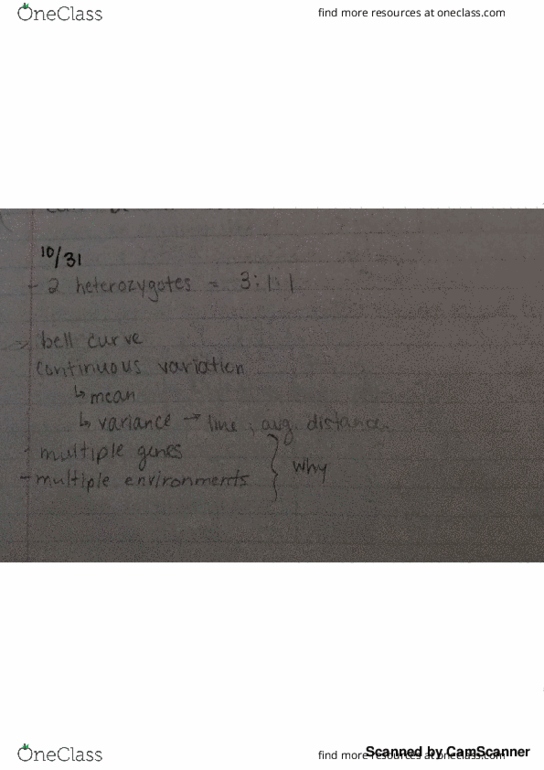 OneClass
find more resources at oneclass.com
10/31
- 2 heterozygotes = 3:1:1
bell curve
continuous variation
↳ mean
↳ variance → line, avg. distance
- multiple genes
- multiple environments } why
OneClass
find more resources at oneclass.com
Scanned by CamScanner